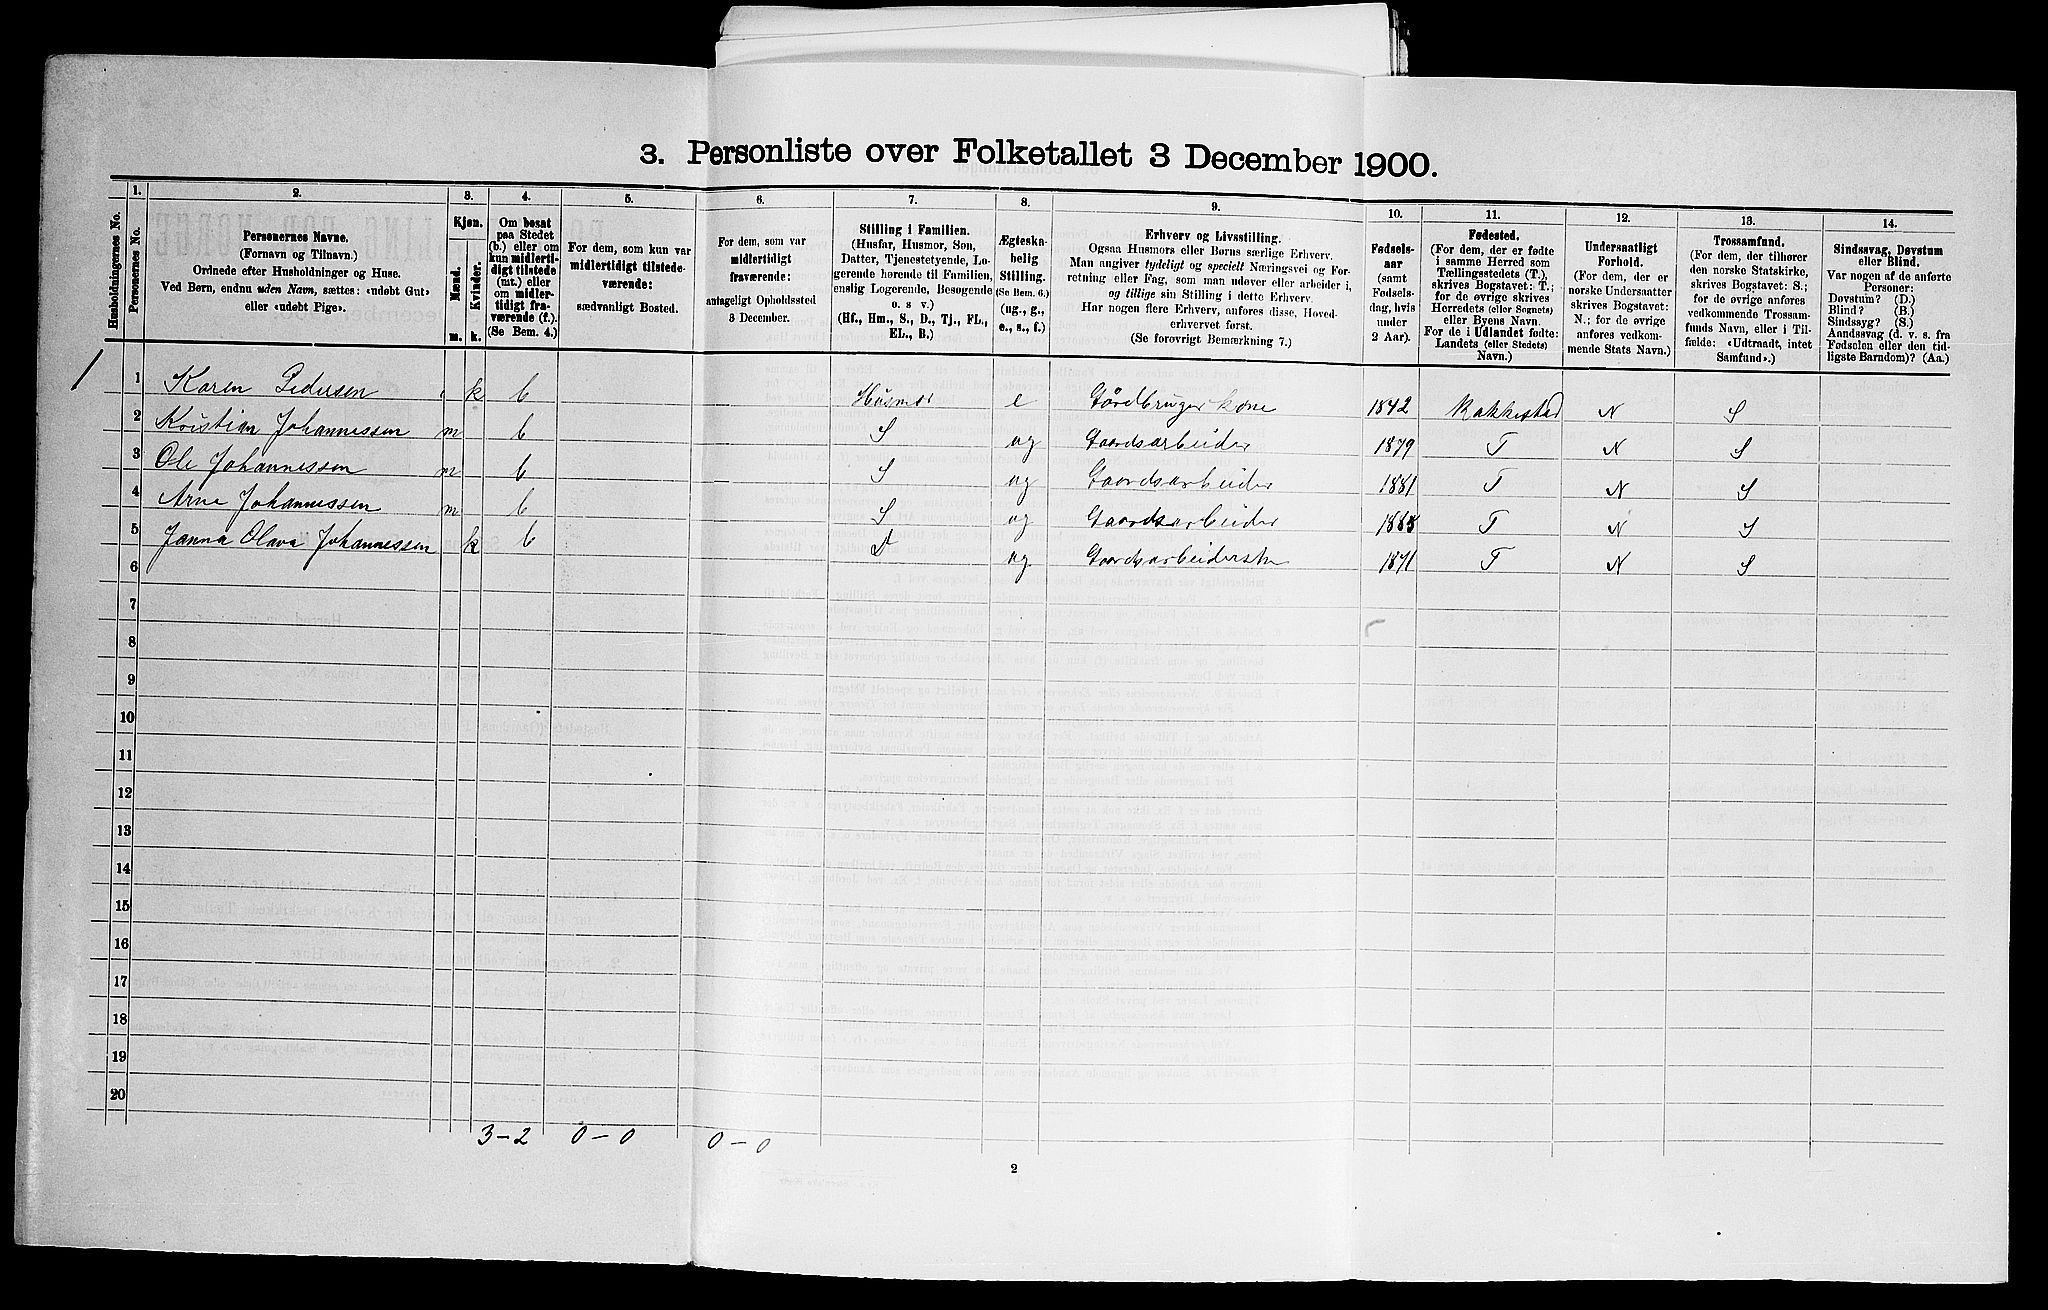 3. Personliste over Folketallet 3 December 1900.
1. 2. 3. 4. 5. 6. 7. 8. 9. 10. 11. 12. 13. 14.
Husholdningernes No.
Personernes No.
Personernes Navne.
(Fornavn og Tilnavn.)
Ordnede efter Husholdninger og Huse.
Ved Børn, endnu uden Navn, sættes: «udøbt Gut»
eller «udøbt Pige».
Kjøn.
Mænd.
Kvinder.
m. k.
Om bosat
paa Stedet
(b.) eller om
kun midler-
tidigt tilstede
(mt.) eller
om midler-
tidigt fra-
værende (f.).
(Se Bem. 4.)
For dem, som kun var
midlertidigt tilstede-
værende:
sædvanligt Bosted.
For dem, som var
midlertidigt
fraværende:
antageligt Opholdssted
3 December.
Stilling i Familien.
(Husfar, Husmor, Søn,
Datter, Tjenestetyende, Lo-
gerende hørende til Familien,
enslig Logerende, Besøgende
o. s v.)
(Hf., Hm., S., D., Tj., FL.,
EL., B.)
Ægteska-
belig
Stilling.
(Se Bem. 6.)
(ug., g.,
e., s., f.)
Erhverv og Livsstilling.
Ogsaa Husmors eller Børns særlige Erhverv.
Man angiver tydeligt og specielt Næringsvei og For-
retning eller Fag, som man udøver eller arbeider i,
og tillige sin Stilling i dette Erhverv.
Har nogen flere Erhverv, anføres disse, Hoved-
erhvervet først.
(Se forøvrigt Bemærkning 7.)
Fødsels-
aar
(samt
Fødsels-
dag, hvis
under
2 Aar).
Fødested.
(For dem, der er fødte
i samme Herred som
Tællingsstedets (T.),
skrives Bogstavet: T.;
for de øvrige skrives
Herredets (eller Sognets)
eller Byens Navn.
For de i Udlandet fødte:
Landets (eller Stedets)
Navn.)
Undersaatligt
Forhold.
(For dem, der er
norske Undersaatter
skrives Bogstavet:
N.; for de øvrige
anføres vedkom-
mende Stats Navn.)
Trossamfund.
(For dem, der tilhører
den norske Statskirke,
skrives Bogstavet: S.;
for de øvrige anføres
vedkommende Trossam-
funds Navn, eller i Til-
fælde: «Udtraadt, intet
Samfund».)
Sindssvag, Døvstum
eller Blind.
Var nogen af de anførte
Personer:
Døvstum? (D.)
Blind? (B.)
Sindssyg? (S.)
Aandssvag (d. v. s. fra
Fødselen eller den tid-
ligste Barndom)? (Aa.)
1 1 Karen Pedersen k b Husmor e Gårdbruger kone 1842 Rakkestad N S
2 Kristian Johannessen m b S ug Gaardsarbeider 1879 T N S
3 Ole Johannessen m b S ug Gaardsarbeider 1881 T N S
4 Arne Johannessen m b S ug Gaardsarbeider T N S
5 Janna Olava Johannessen k b D ug Gaardsarbeiderske 1871 T N S
6
7
8
9
10
11
12
13
14
15
16
17
18
19
20
3 – 2 0 – 0 0 – 0
2